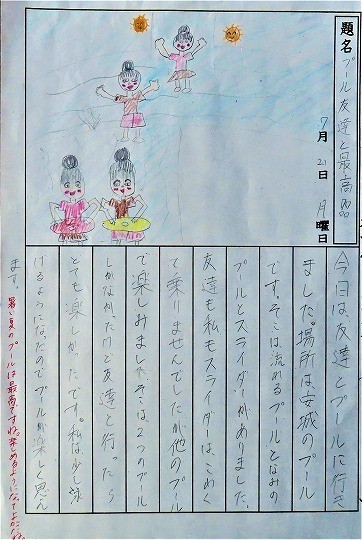 題名 プール友達と最高
7月21日 月曜日
今日は友達とプールに行き
ました。場所は安城のプール
です。そこは流れるプールとなみの
プールとスライダーがありました。
友達も私もスライダーは、こわく
て乗りませんでしたが他のプール
で楽しみました。そこは2つのプール
しかなかったけど友達と行ったら
とても楽しかったです。私は少し泳
げるようになったのでプールが楽しく思え
ます。
暑い夏のプールは最高ですね。楽しめるようになってよかったね。